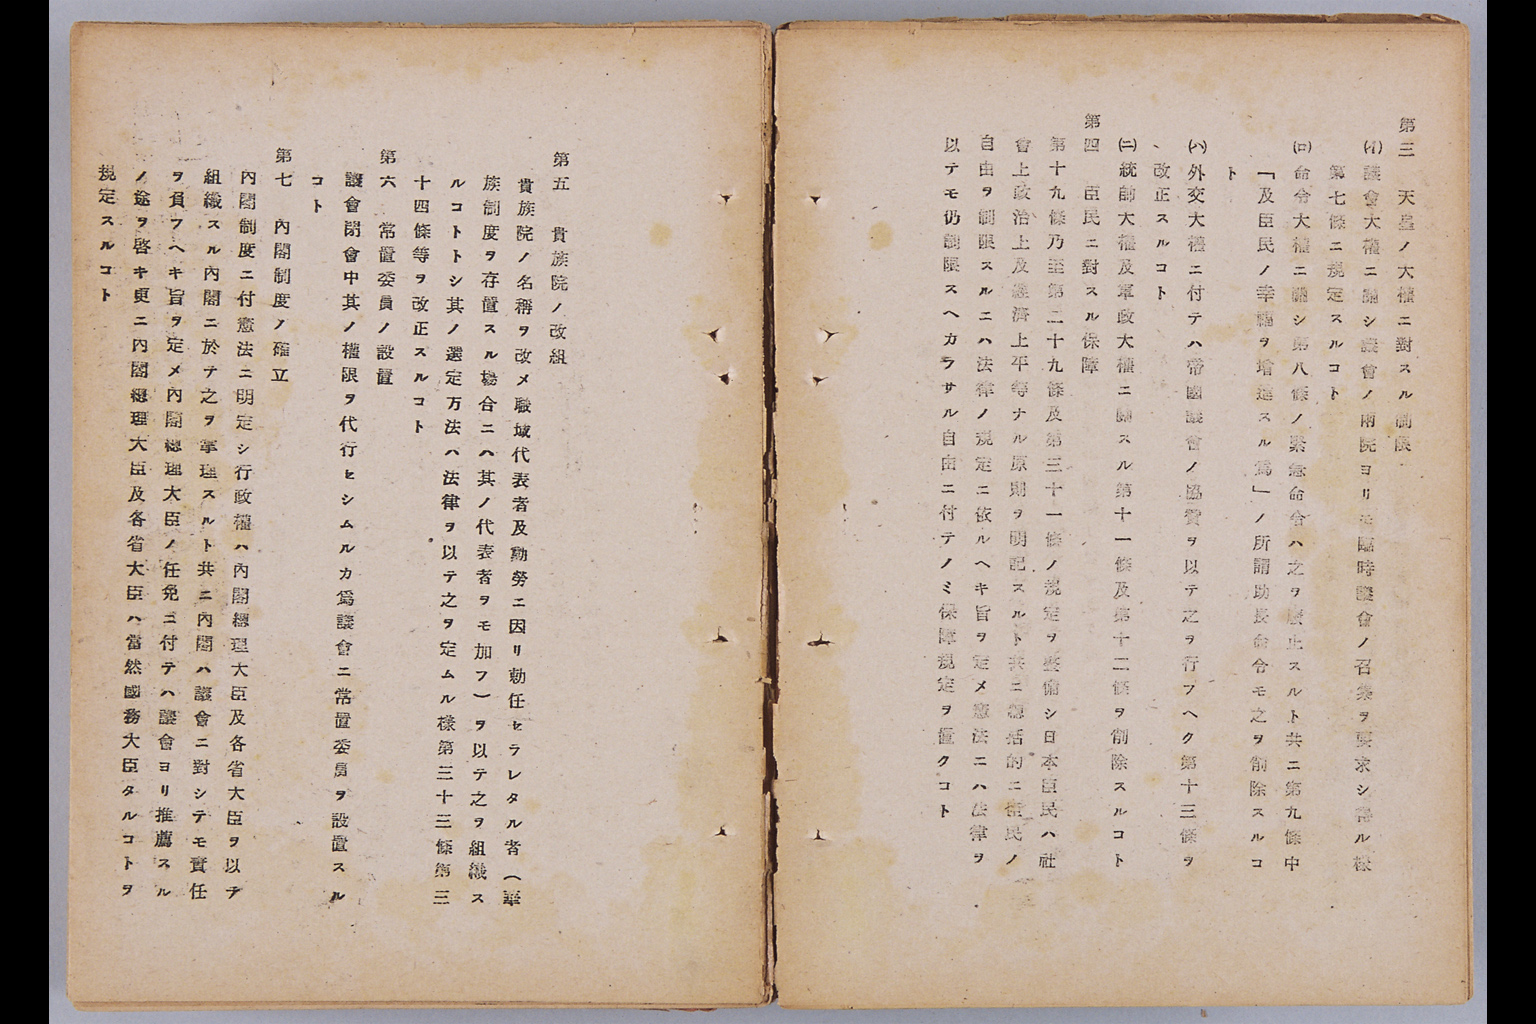 第三　天皇ノ大權ニ對スル制限
(イ)議會大權ニ關シ議會ノ兩院ヨリモ臨時議會ノ召集ヲ要求シ得ル樣
第七條ニ規定スルコト
(ロ)命令大權ニ關シ第八條ノ緊急命令ハ之ヲ廢止スルト共ニ第九條中
「及臣民ノ幸福ヲ增進スル爲」ノ所謂助長命令モ之ヲ削除スルコ
ト
(ハ)外交大權ニ付テハ帝國議會ノ協贊ヲ以テ之ヲ行フヘク第十三條ヲ
、改正スルコト
(ニ)統帥大權及軍政大權ニ關スル第十一條及第十二條ヲ削除スルコト
第四　臣民ニ對スル保障
第十九條乃至第二十九條及第三十一條ノ規定ヲ整備シ日本臣民ハ社
會上政治上及經濟上平等ナル原則ヲ明記スルト共ニ總括的ニ臣民ノ
自由ヲ制限スルニハ法律ノ規定ニ依ルヘキ旨ヲ定メ憲法ニハ法律ヲ
以テモ仍制限スヘカラサル自由ニ付テノミ保障規定ヲ置クコト
第五　貴族院ノ改組
貴族院ノ名稱ヲ改メ職域代表者及勳勞ニ因リ勅任セラレタル者（華
族制度ヲ存置スル場合ニハ其ノ代表者ヲモ加フ）ヲ以テ之ヲ組織ス
ルコトトシ其ノ選定方法ハ法律ヲ以テ之ヲ定ムル樣第三十三條第三
十四條等ヲ改正スルコト
第六　常置委員ノ設置
議會閉會中其ノ權限ヲ代行セシムルカ爲議會ニ常置委員ヲ設置スル
コト
第七　內閣制度ノ確立
內閣制度ニ付憲法ニ明定シ行政權ハ內閣總理大臣及各省大臣ヲ以テ
組織スル內閣ニ於テ之ヲ掌理スルト共ニ內閣ハ議會ニ對シテモ責任
ヲ負フヘキ旨ヲ定メ內閣總理大臣ノ任免ニ付テハ議會ヨリ推薦スル
ノ途ヲ啓キ更ニ內閣總理大臣及各省大臣ハ當然國務大臣タルコトヲ
規定スルコト